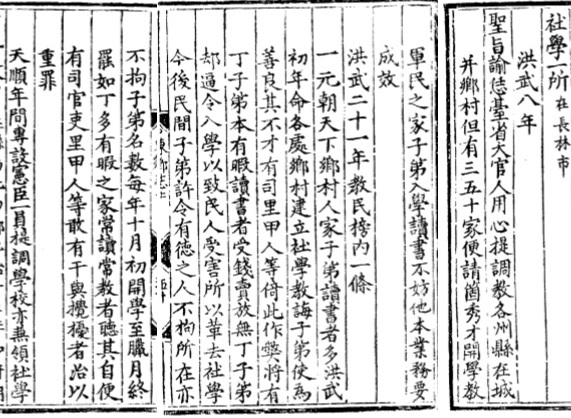 社學一所在長林市
洪武八年
聖旨諭恁臺省大官人用心提調教各州縣在城
并鄉村但有三五十家便請箇秀才開學教
軍民之家子弟入學讀書不妨他本業務要
成效
洪武二十一年教民榜內一條
一元朝天下鄉村人家子弟讀書者多洪武
初年命各處鄉村建立社學教誨子弟使為
善良其不才有司里甲人等倚此作弊將有
丁子弟本有暇讀書者受錢賣放無丁子弟
却逼令入學以致民人受害所以革去社學
今後民間子弟許令有德之人不拘所在亦
不拘子弟名數每年十月初開學至臘月終
罷如丁多有暇之家常讀常教者聽其自便
有司官吏里甲人等敢有干與攪擾者治以
重罪
天順年間專設憲臣一員提調學校亦兼領社學